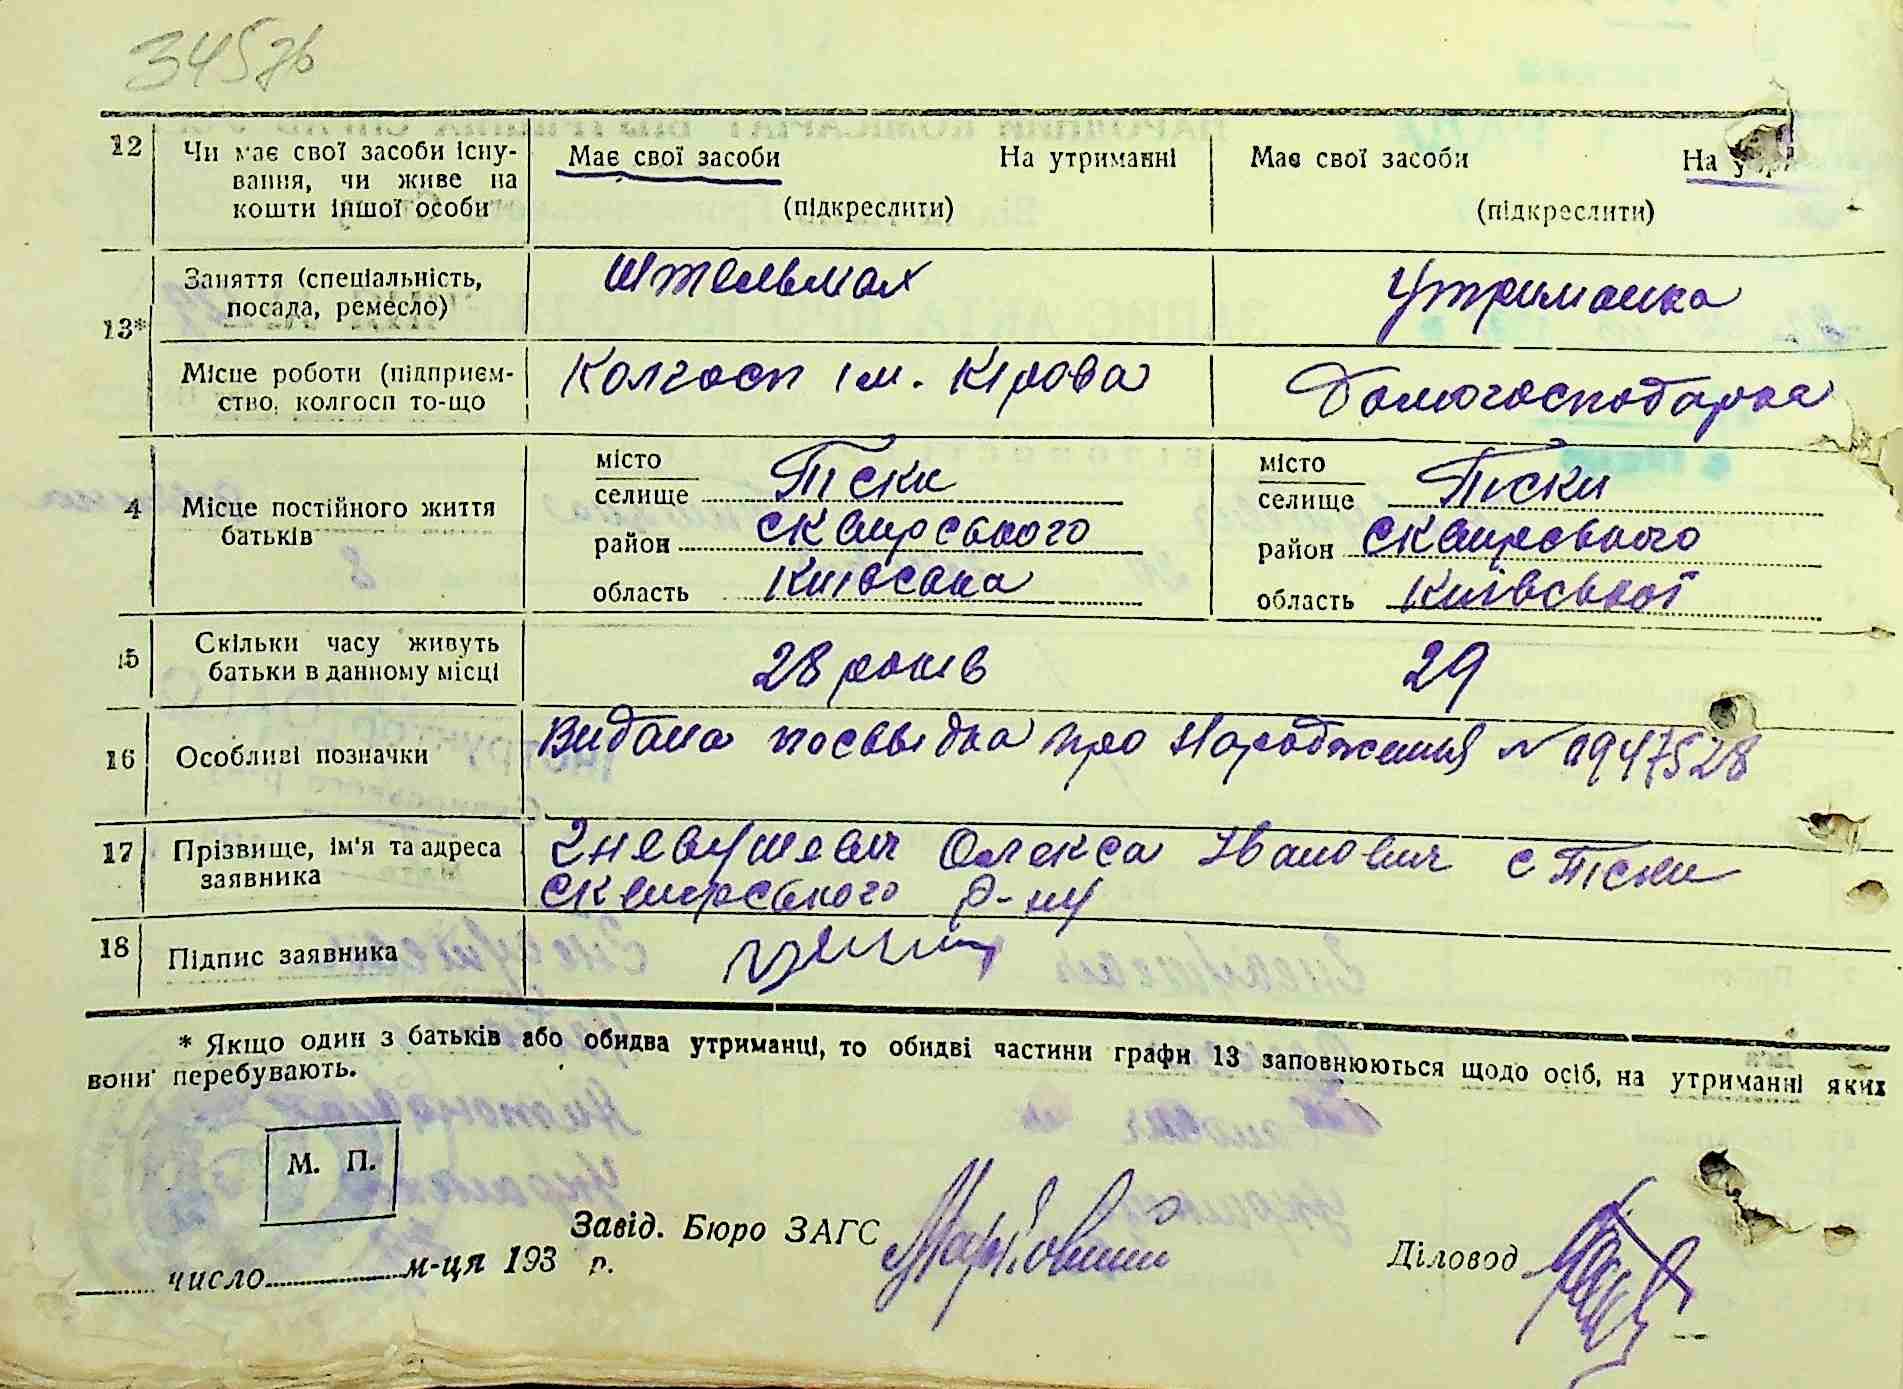 34576
12 Чи має свої засоби існу-
вання, чи живе на
кошти іншої особи
Має свої засоби На утриманні
(підкреслити)
Має свої засоби На утри
(підкреслити)
13*
Заняття (спеціальність,
посада, ремесло)
Штельмах
Утриманка
Місце роботи (підприєм-
ство, колгосп то-що
Колгосп ім. Кірова
Домогосподарка
4 Місце постійного життя
батьків
місто
селище Піски
район Сквирського
область Київська
місто
селище Піски
район Сквирського
область Київської
15 Скільки часу живуть
батьки в данному місці
28 років
29
16 Особливі позначки
Видана посвідка про народження N 1947528
17 Прізвище, ім'я та адреса
заявника
Гневушевич Олекса Іванович с Піски
Сквирського р-ну
18 Підпис заявника
* Якщо один з батьків або обидва утриманці, то обидві частини графи 13 заповнюються щодо осіб, на утриманні яких
вони перебувають.
М. П.
Завід. Бюро ЗАГС
Діловод
число м-ця 193 р.